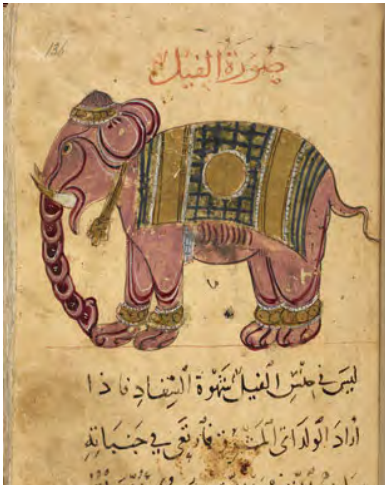 136
صورة الفيل
ليس في جنس الفيل شهوة السفاد فاذا
اراد الولد اتى المشرق في جنباته